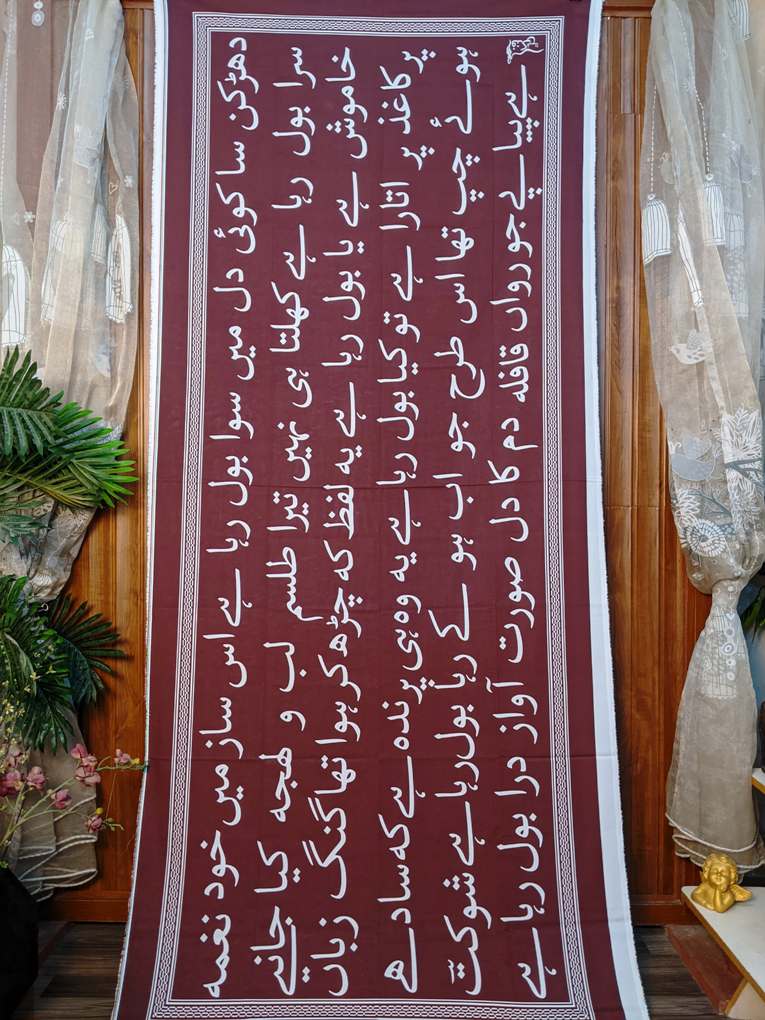 دھڑکن سا کوئی دل میں سوا بول رہا ہے اس ساز میں خود نغمه
سرا بول رہا ہے کھلتا ہی نہیں تیرا طلسم لب و لهجه کیا جانیے
خاموش ہے یا بول رہا ہے یه لفظ که چڑھ کر ہوا تھا گنگ زباں
پر کاغذ پر اتارا ہے تو کیا بول رہا ہے یه وہ ہی پرندہ ہے که سادھے
ہوئے چپ تھا اس طرح جو اب ہو کے رہا بول رہا ہے شوکت
ہے پیاپے جو رواں قافله دم کا دل صورت آواز درا بول رہا ہے